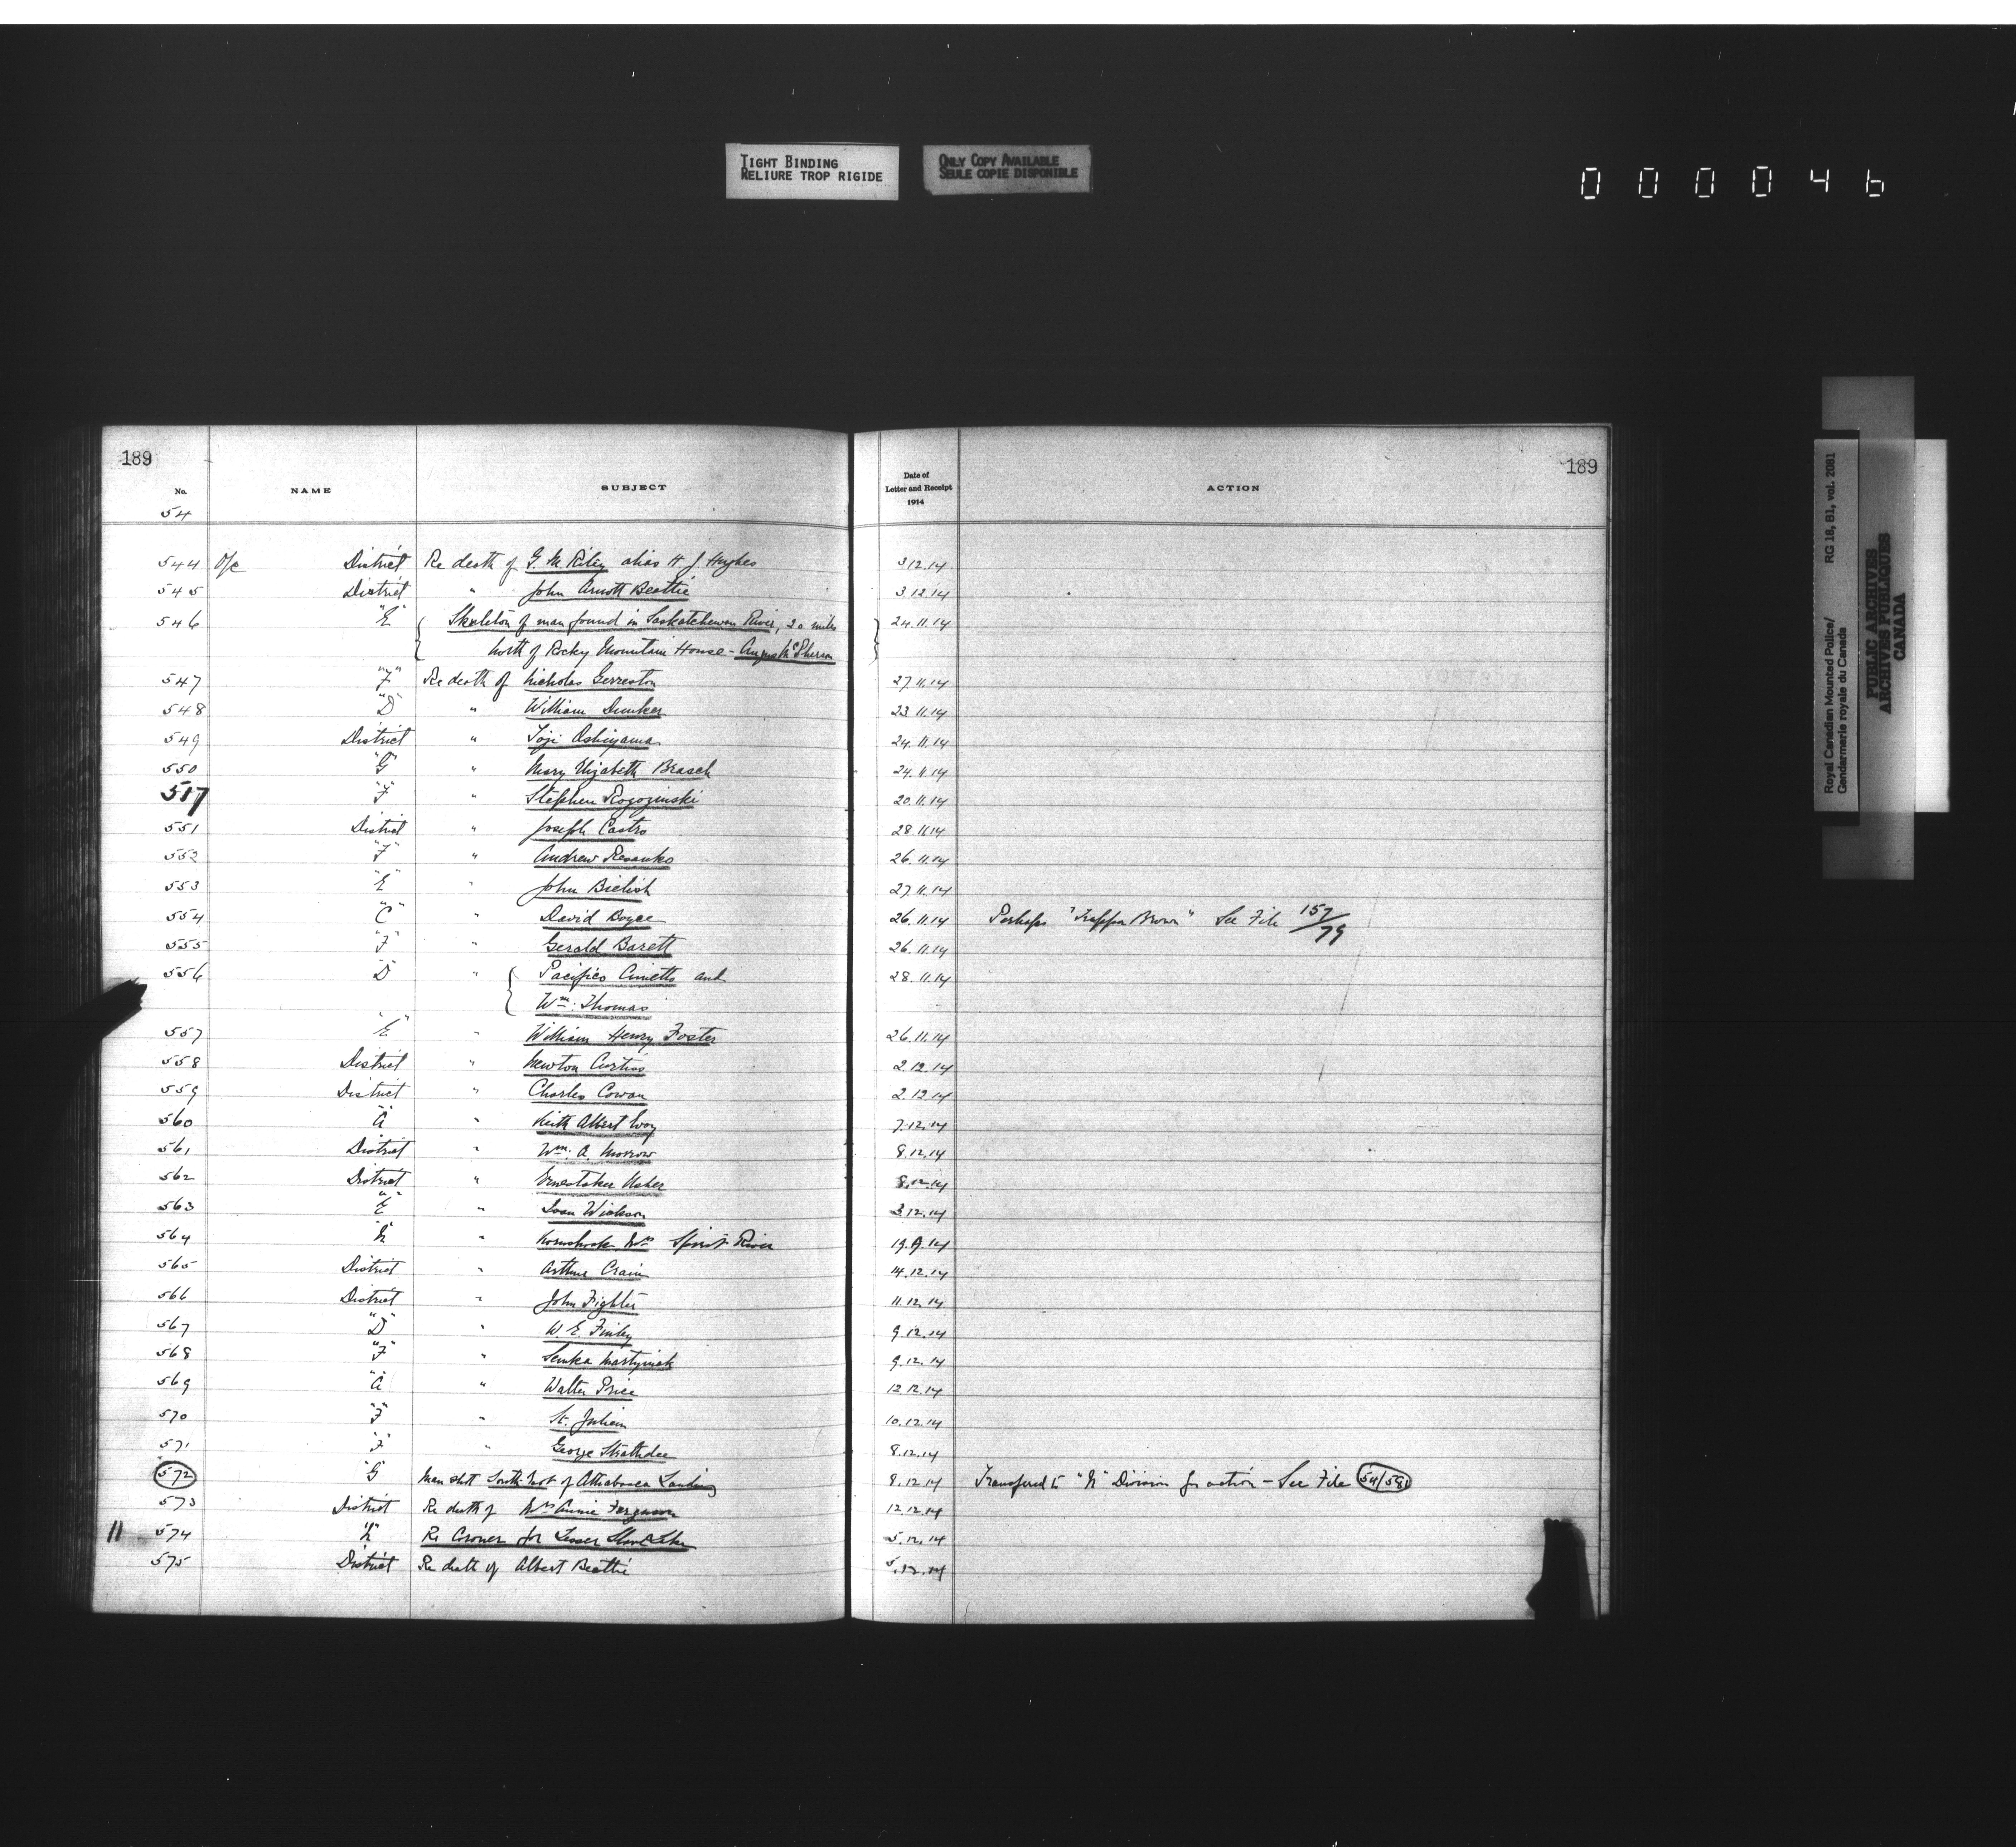 TIGHT BINDING
RELIURE TROP RIGIDE
ONLY COPY AVAILABLE
SEULE COPIE DISPONIBLE
000046
189
189
No. NAME SUBJECT Date of Letter and Receipt 1914 ACTION
54
544 O/c District Re death of G. M. Riley alias H J Hughes 3.12.14
545 District " John Arnott Beattie 3.12.14
546 "E" Skeleton of man found in Saskatchewan River, 20 miles 24.11.14
north of Rocky Mountain House - Angus McPherson
547 "F" Re death of Nicholas Gerreston 27.11.14
548 "D" " William Dunker 23.11.14
549 District " Toji Oshiyama 24.11.14
550 "G" " Mary Elizabeth Brasch 24.11.14
517 "F" " Stephen Rogozinski 20.11.14
551 District " Joseph Castro 28.11.14
552 "F" " Andrew 26.11.14
553 "E" " John Bielish 27.11.14
554 "C" " David Boyce 26.11.14 Perhaps "Trapper Brown" See File 157/79
555 "F" " Gerald Barett 26.11.14
556 "D" " Pacifico and 28.11.14
Wm. Thomas
557 "E" " William Henry Foster 26.11.14
558 District " Newton Curtiss 2.12.14
559 District " Charles Cowan 2.12.14
560 "A" " Keith Albert 7.12.14
561 District " Wm. A. Morrow 8.12.14
562 District " Usher 8.12.14
563 "E" " Wickson 3.12.14
564 "N" " Spirit River 19.9.14
565 District " Arthur Crain 14.12.14
566 District " John Fighter 11.12.14
567 "D" " W. E. Finley 9.12.14
568 "F" " Semka Martyniak 9.12.14
569 "A" " Walter Price 12.12.14
570 "F" " St. Julien 10.12.14
571 "F" " George Strathdee 8.12.14
572 "G" Man shot South-West of Athabasca Landing 8.12.14 Transfered to "N" Division for action - See File 54/580
573 District Re death of Mrs Annie Ferguson 12.12.14
11 574 "N" Re Coroner for Lesser Slave Lake 5.12.14
575 District Re death of Albert Beattie 5.12.14
Royal Canadian Mounted Police/ RG 18, B1, vol. 2081
Gendarmerie royale du Canada
PUBLIC ARCHIVES
ARCHIVES PUBLIQUES
CANADA